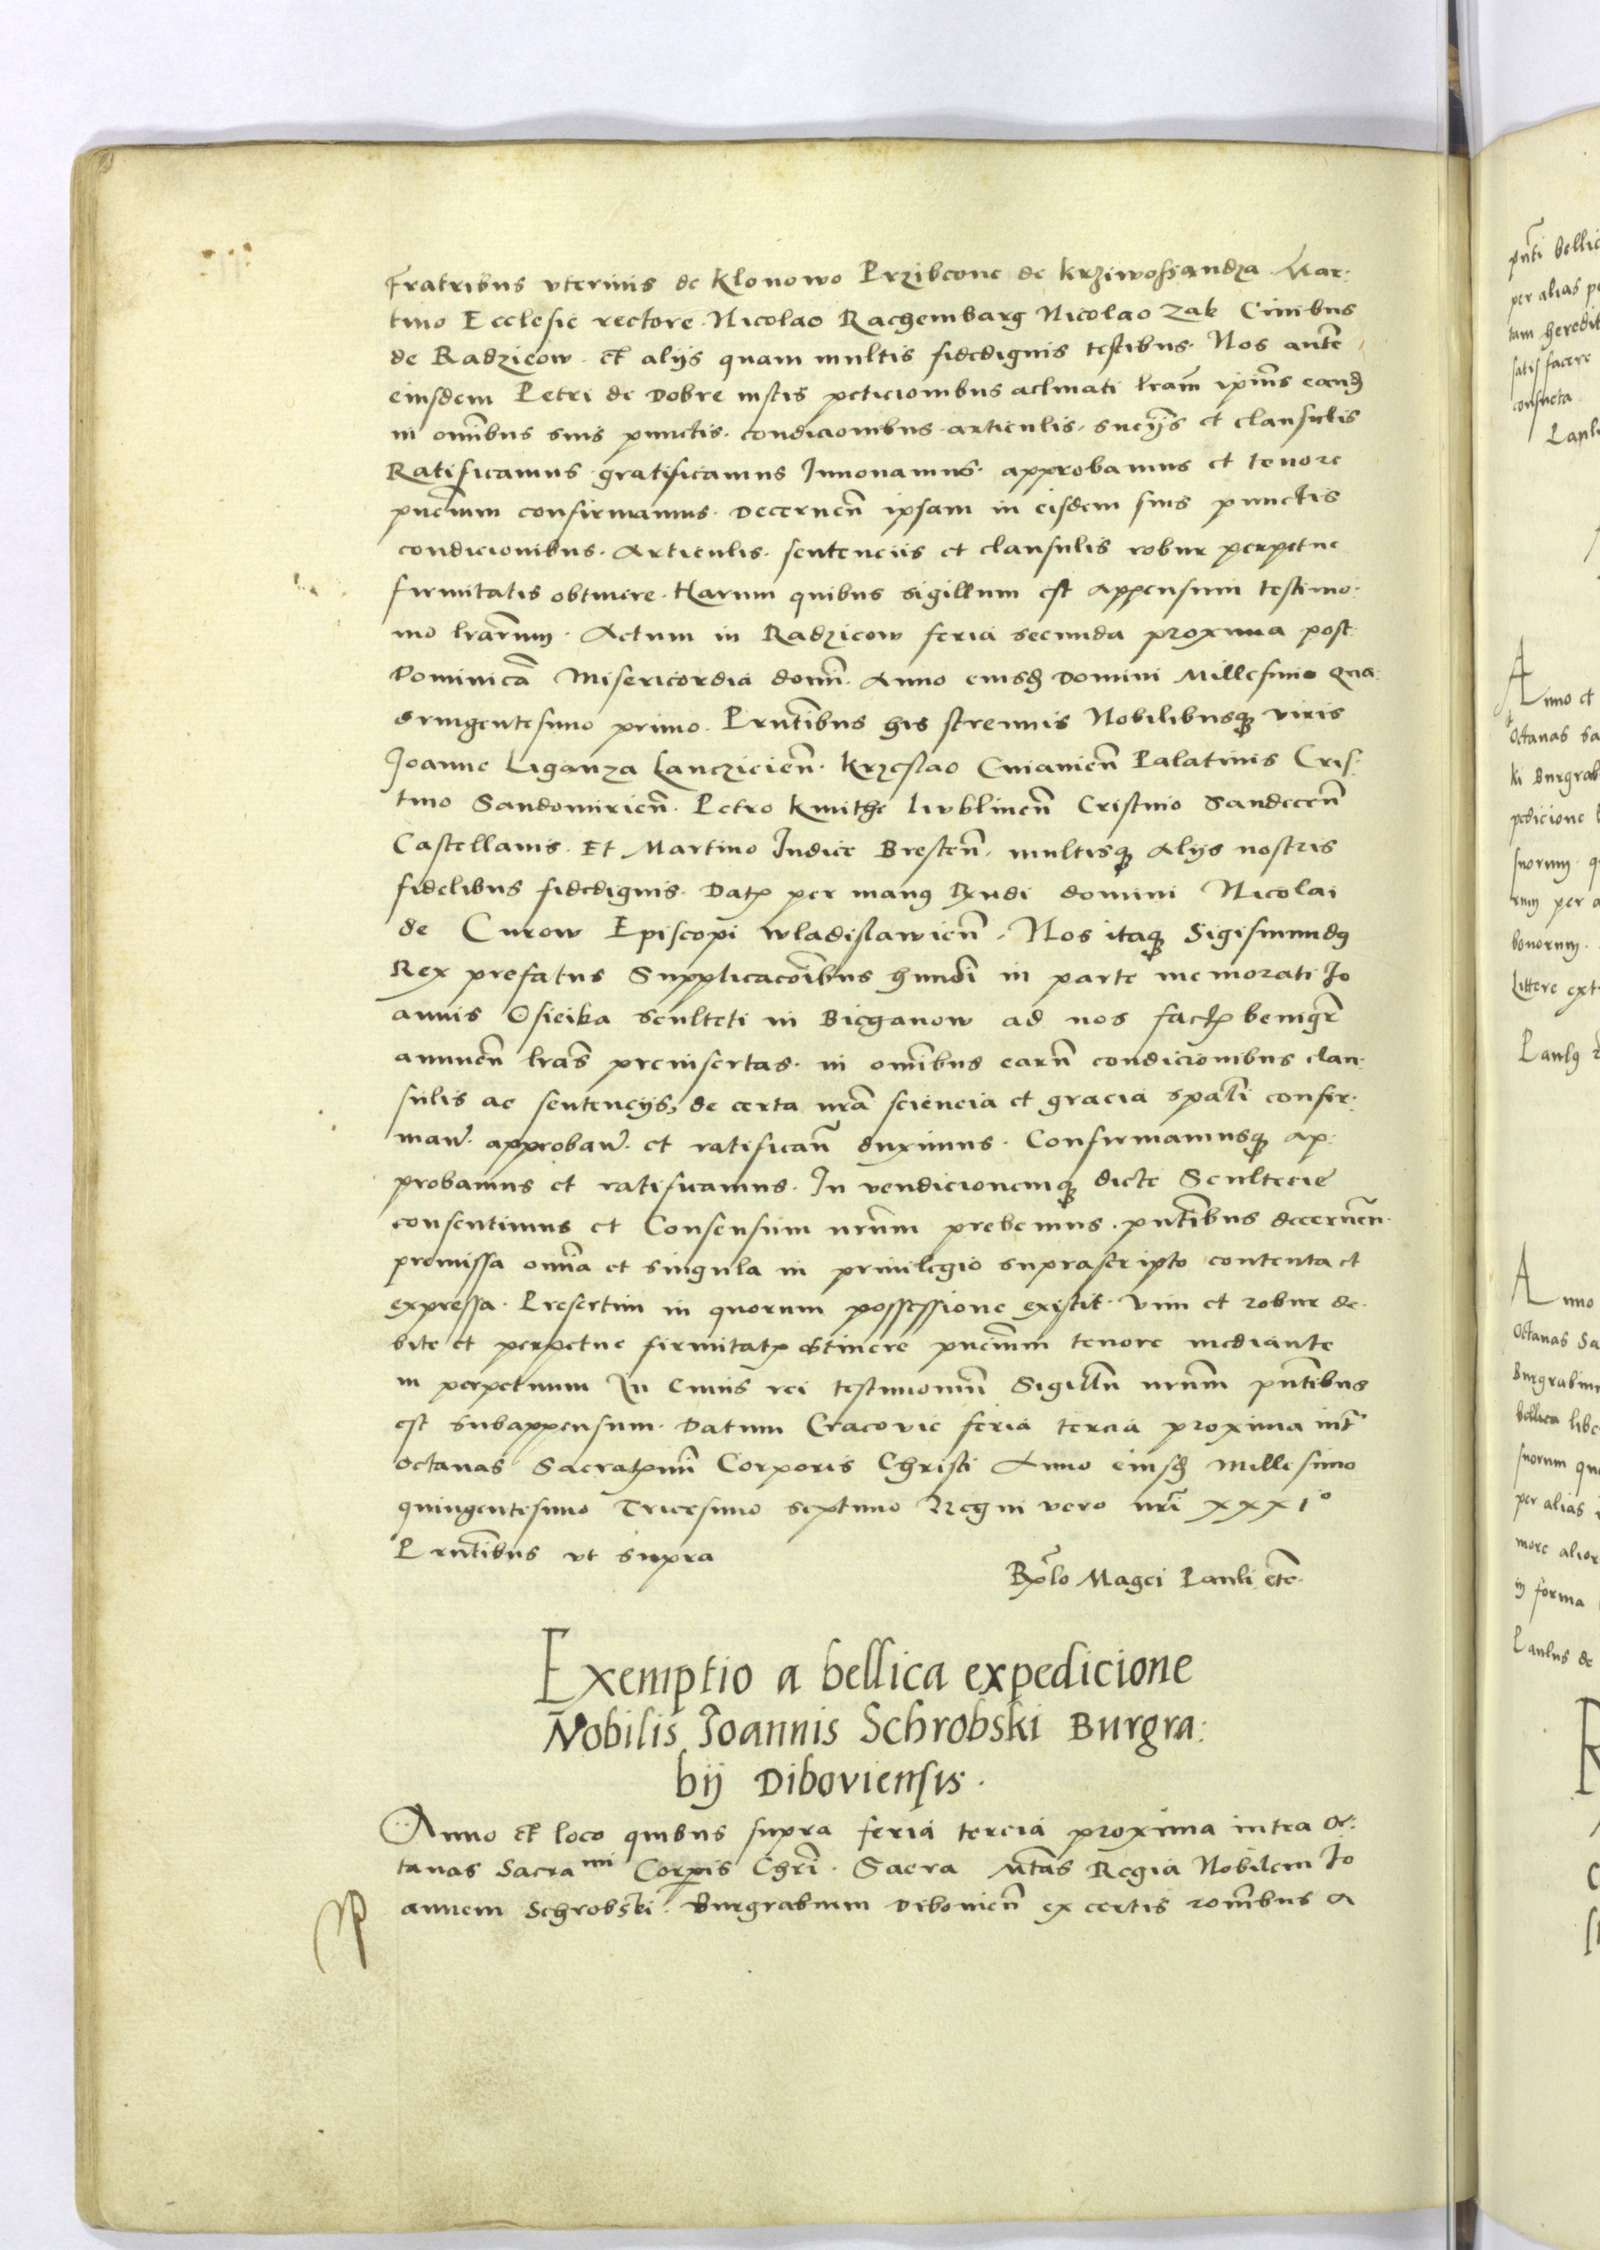 Fratribus vterinis de Klonowo Przibcone de Krziwossandza Mar-
tino Ecclesie rectore. Nicolao Rachembarg Nicolao Zak Ciuibus
de Radzieow. Et alijs quam multis fidedignis testibus. Nos antē
eiusdem Petri de Dobre iustis peticionibus aclinati lrām ipius eand
in omībus suis punctis. condicionibus. articulis. snciis et clausulis
Ratificamus gratificamus Innouamus. approbamus et tenore
pnciūm confirmamus. Decernen̄ ipsam in eisdem suis punctis
condicionibus. Articulis. sentenciis et clausulis robur perpetue
firmitatis obtinere. Harum quibus sigillum est Appensum testimo-
nio lrārum. Actum in Radzieow feria secunda proxima post
Dominicā Misericordia domī. Anno eiusd Domini Millesimo Qua:
dringentesimo primo. Prntībus his strennis Nobilibusq viris
Joanne Liganza Lancziciēn. Krzeslao Cuianiēn Palatinis Cris-
tino Sandomiriēn. Petro Kmithe Lublinēn Cristino Sandecēn
Castellanis. Et Martino Judice Brestēn. multisq Alijs nostris
fidelibus fidedignis. Datp per manq Rndi domini Nicolai
de Curow Episcopi Wladislawiēn. Nos itaq Sigismundq
Rex prefatus Supplicacōibus humīli in parte memorati Jo
annis Osieika sculteti in Bieganow ad nos factp benigr̄e
annuēn lrās preinsertas. in omībus earū condicionibus clau-
sulis ac sentencijs, de certa nrā sciencia et gracia spālī confir-
man̄. approban̄. et ratifican̄ duximus. Confirmamusq ap:
probamus et ratificamus. In vendicionemq dicte Scultecie
consentimus et Consensum nrūm prebemus. pntībus decernēn.
premissa omīa et singula in priuilegio suprascripto contenta et
expressa. Presertim in quorum possessione existit. vim et robur de-
bite et perpetue firmitatp obtinere pnciūm tenore mediante
in perpetuum In Cuius rei testimoniū Sigillū nrūm pntībus
est subappensum. Datum Cracovie feria tercia proxima int̄
octauas Sacratpmi Corporis Christi Anno eiusd Millesimo
quingentesimo Tricesimo septimo Regni vero nrī xxxi°
Prntībus vt supra
Rxlo Magci Pauli etc.
Exemptio a bellica expedicione
Nobilis Joannis Schrobski Burgra:
bij Diboviensis.
Anno et loco quibus supra feria tercia proxima intra Oc:
tanas Sacra mi Corpis Chrī. Sacra Mtās Regia Nobilem Jo
annem Schrobski. Burgrabium Diboniēn ex certis rōnibus A